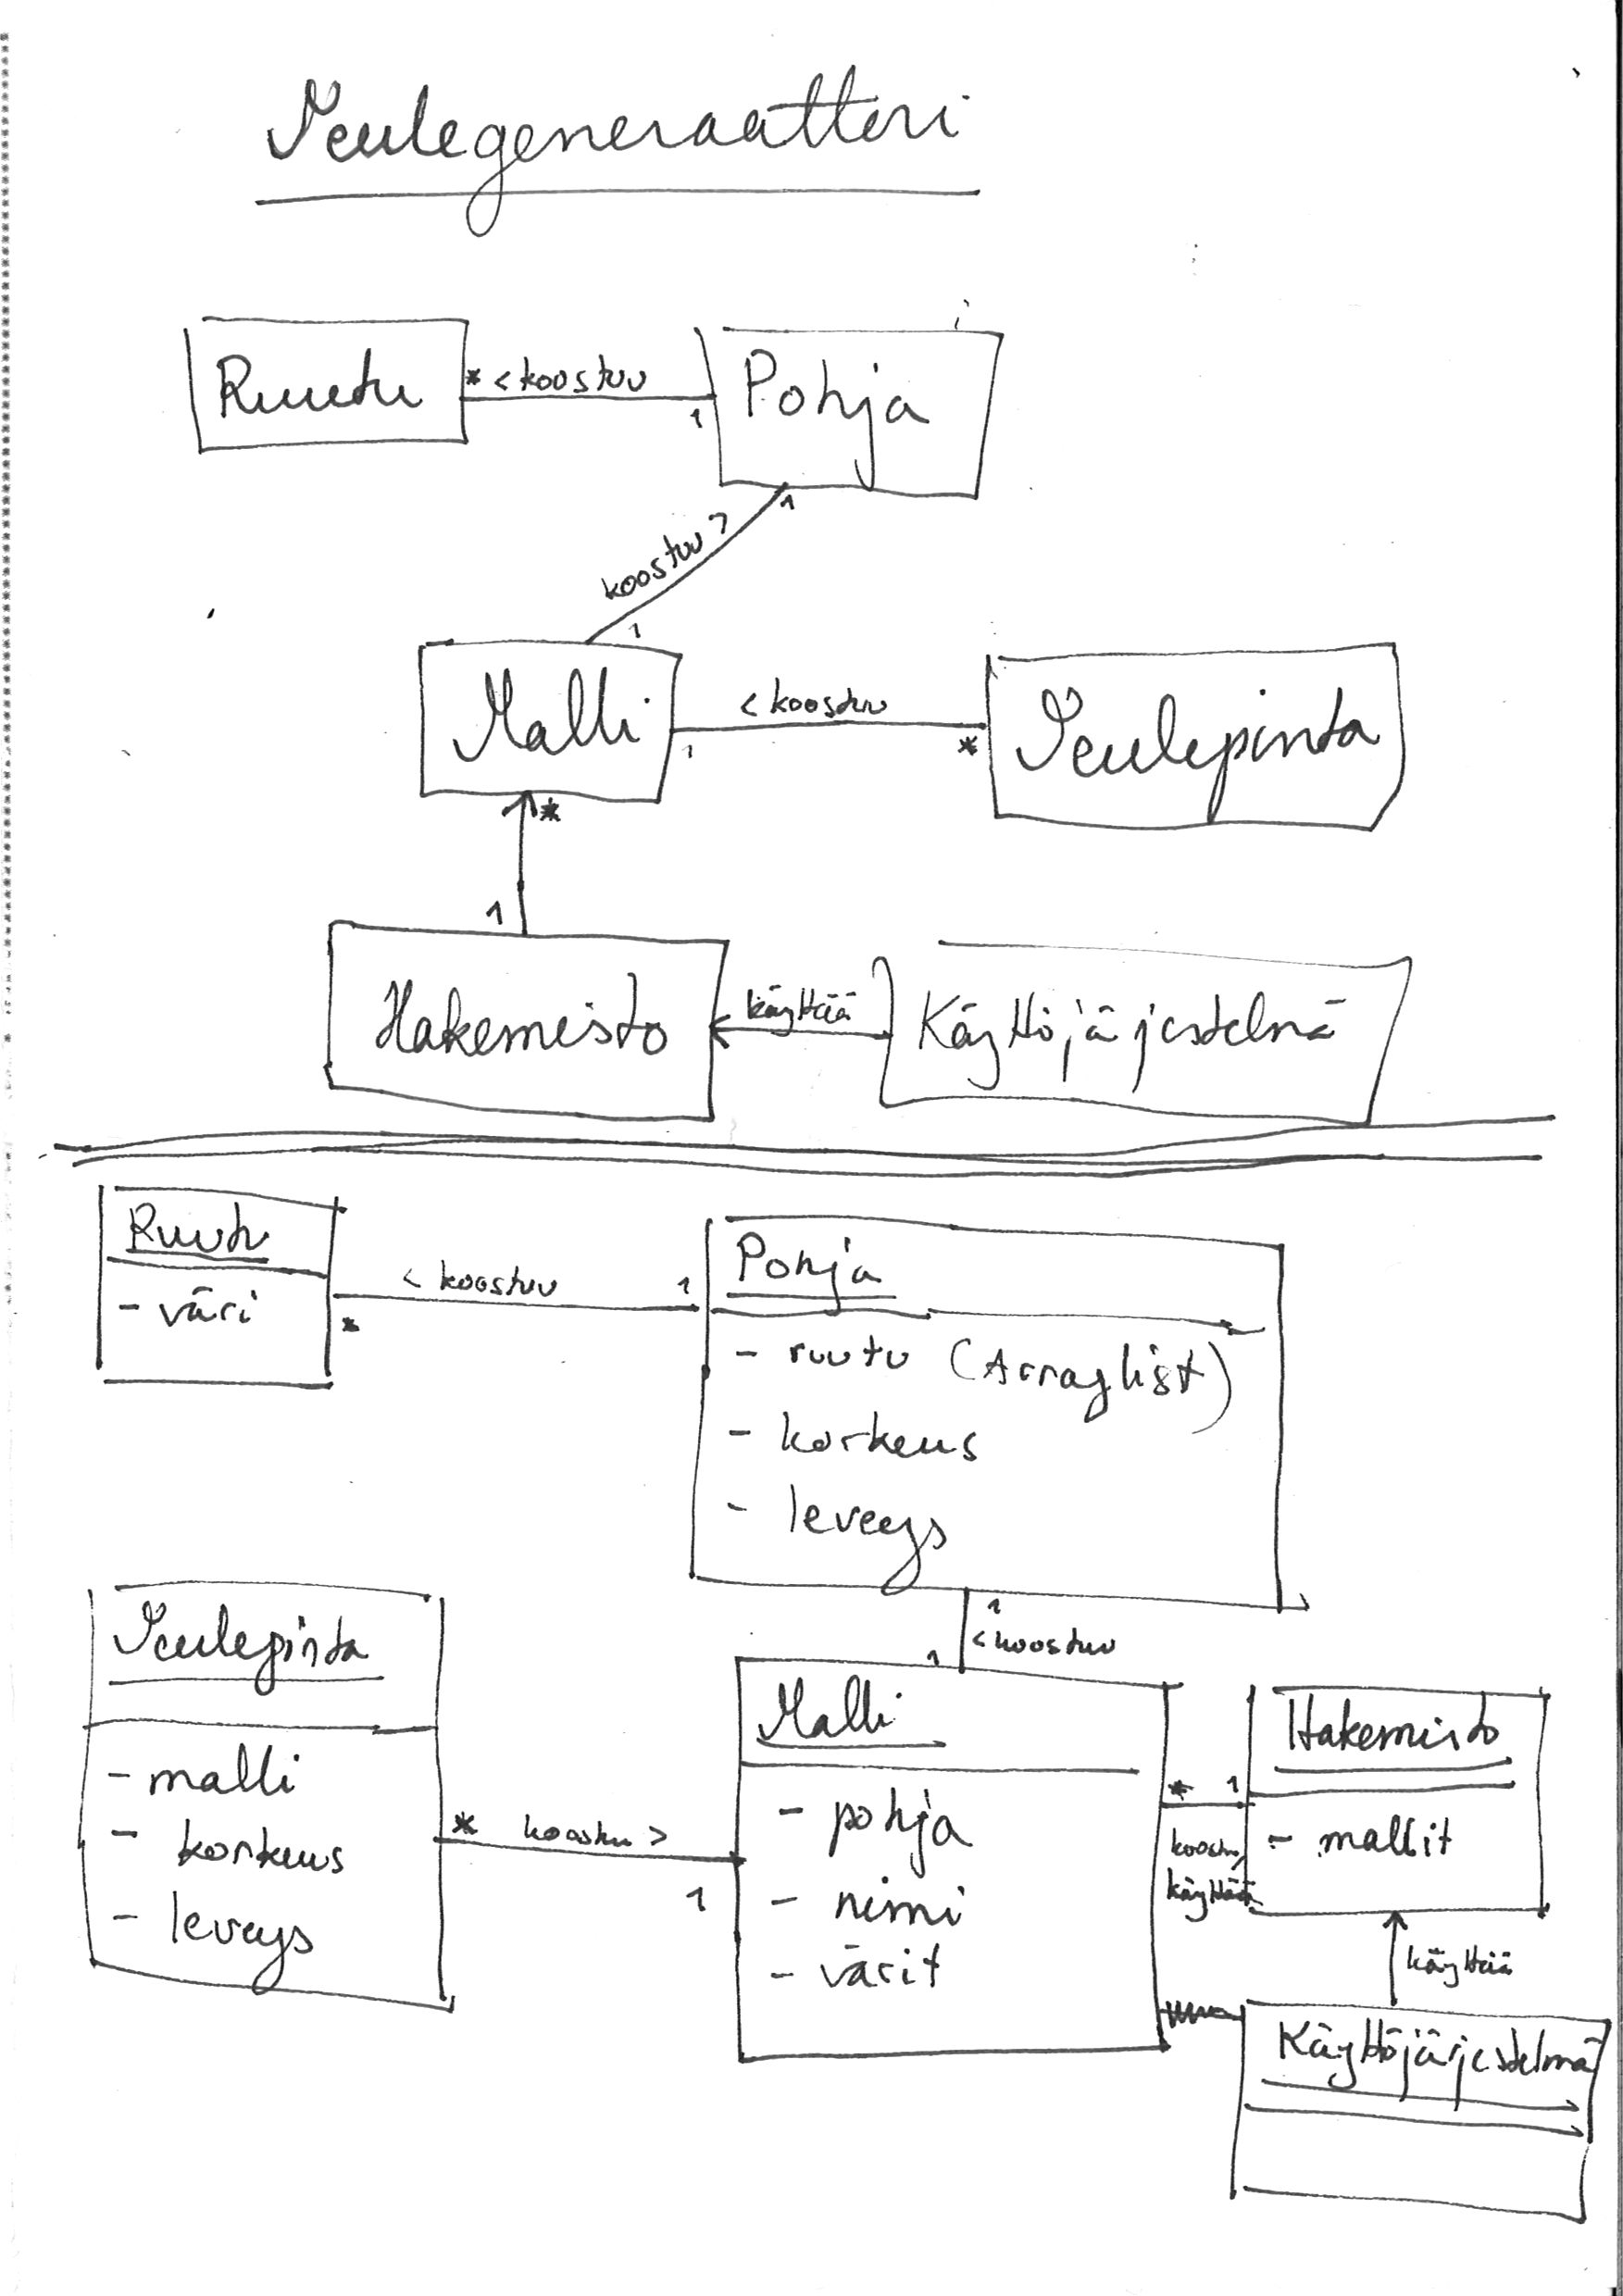 Neulegeneraattori
Ruutu
* < koostuu
1
Pohja
1
koostuu >
1
Malli
< koostuu
1
*
Neulepinta
*
1
Hakemisto
käyttää
Käyttöjärjestelmä
Ruutu
- väri
< koostuu
1
*
Pohja
- ruutu (Arraylist)
- korkeus
- leveys
1
< koostuu
1
Neulepinta
- malli
- korkeus
- leveys
* koostuu >
1
Malli
- pohja
- nimi
- värit
* 1
käyttää
Hakemisto
- mallit
käyttää
Käyttöjärjestelmä